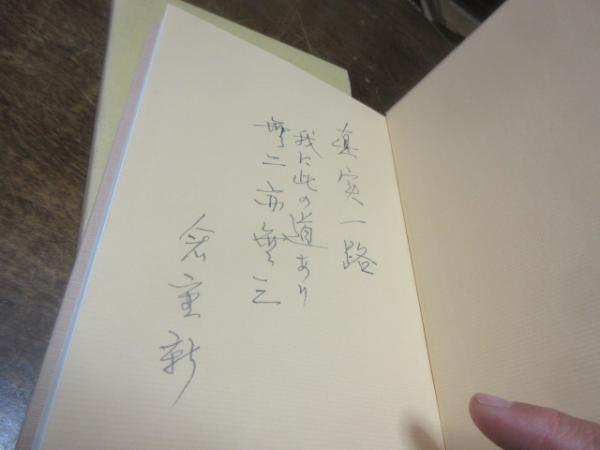 真実一路
我に此の道あり
無二亦無三
倉重新